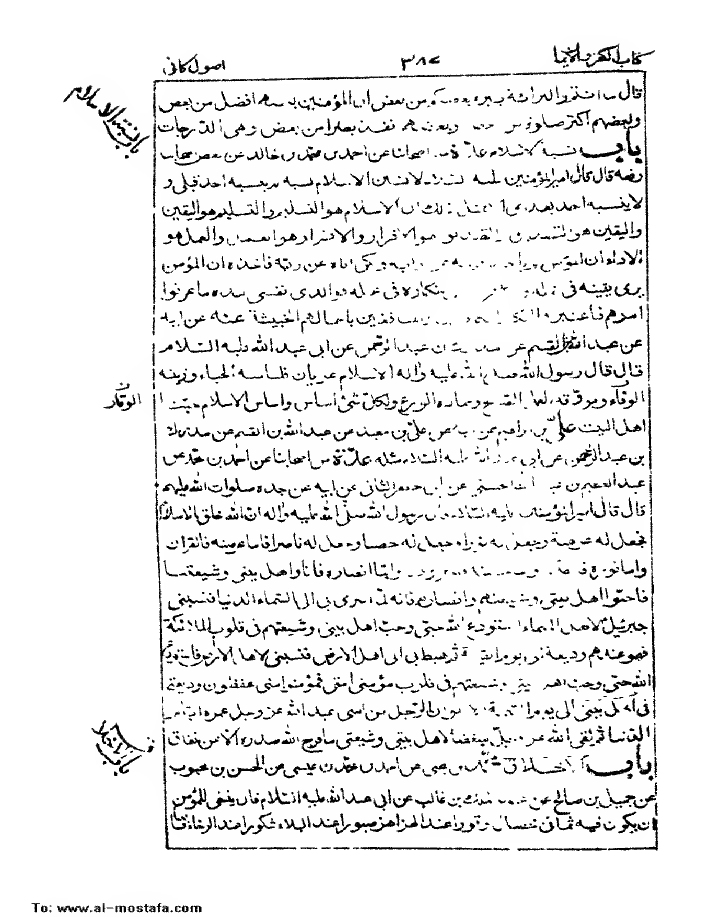 كتاب الكفر والايما ٣٨٧ اصول كافى
باب نسبة الاسلام
قال ما انتم والبرائة يبرء بعضكم من بعض ان المؤمنين بعضهم افضل من بعض
وبعضهم اكثر صلوة من بعض وبعضهم انفذ بصرا من بعض وهى الدرجات
باب نسبة الاسلام عدة من اصحابنا عن احمد بن محمد بن خالد عن بعض اصحابنا
رفعه قال قال امير المؤمنين لانسبن الاسلام نسبة لم ينسبه احد قبلى و
لا ينسبه احد بعدى الا بمثل ذلك ان الاسلام هو التسليم والتسليم هو اليقين
واليقين هو التصديق والتصديق هو الاقرار والاقرار هو العمل والعمل هو
الاداء ان المؤمن لم ياخذ دينه عن رايه ولكن اتاه من ربه فاخذه ان المؤمن
يرى يقينه فى عمله والكافر يرى انكاره فى عمله فوالذى نفسى بيده ما عرفوا
امرهم فاعتبروا انكار الكافرين والمنافقين باعمالهم الخبيثة عنه عن ابيه
عن عبد الله بن القسم عن مدرك بن عبد الرحمن عن ابى عبد الله عليه السلام
قال قال رسول الله صلى الله عليه واله الاسلام عريان فلباسه الحياء وزينته
الوفاء ومروته العمل الصالح وعماده الورع ولكل شئ اساس واساس الاسلام حبنا
الوقار
اهل البيت على بن ابراهيم عن ابيه عن على بن معبد عن عبد الله بن القسم عن مدرك
بن عبد الرحمن عن ابى عبد الله عليه السلام مثله عدة من اصحابنا عن احمد بن محمد عن
عبد العظيم بن عبد الله الحسنى عن ابى جعفر الثانى عن ابيه عن جده صلوات الله عليهم
قال قال امير المؤمنين عليه السلام قال رسول الله صلى الله عليه واله ان الله خلق الاسلام
فجعل له عرصة وجعل له نورا وجعل له حصنا وجعل له ناصرا فاما عرصته فالقران
واما نوره فالحكمة واما حصنه فالمعروف واما انصاره فانا واهل بيتى وشيعتنا
فاحبوا اهل بيتى وشيعتهم وانصارهم فانه لما اسرى بى الى السماء الدنيا فنسبنى
جبرئيل لاهل السماء استودع الله حبى وحب اهل بيتى وشيعتهم فى قلوب الملائكة
فهو عندهم وديعة الى يوم القيمة ثم هبط بى الى اهل الارض فنسبنى لاهل الارض فاستودع
الله حبى وحب اهل بيتى وشيعتهم فى قلوب مؤمنى امتى فمؤمنوا امتى يحفظون وديعتى
فى اهل بيتى الى يوم القيمة الا فلو ان الرجل من امتى عبد الله عز وجل عمره ايام
الدنيا ثم لقى الله عز وجل مبغضا لاهل بيتى وشيعتى ما فرج الله صدره الا عن نفاق
باب محمد بن يحيى عن احمد بن محمد بن عيسى عن الحسن بن محبوب
عن جميل بن صالح عن عبد الملك بن غالب عن ابى عبد الله عليه السلام قال ينبغى للمؤمن
ان يكون فيه ثمانى خصال وقورا عند الهزاهز صبورا عند البلاء شكورا عند الرخاء قا
To: www.al-mostafa.com